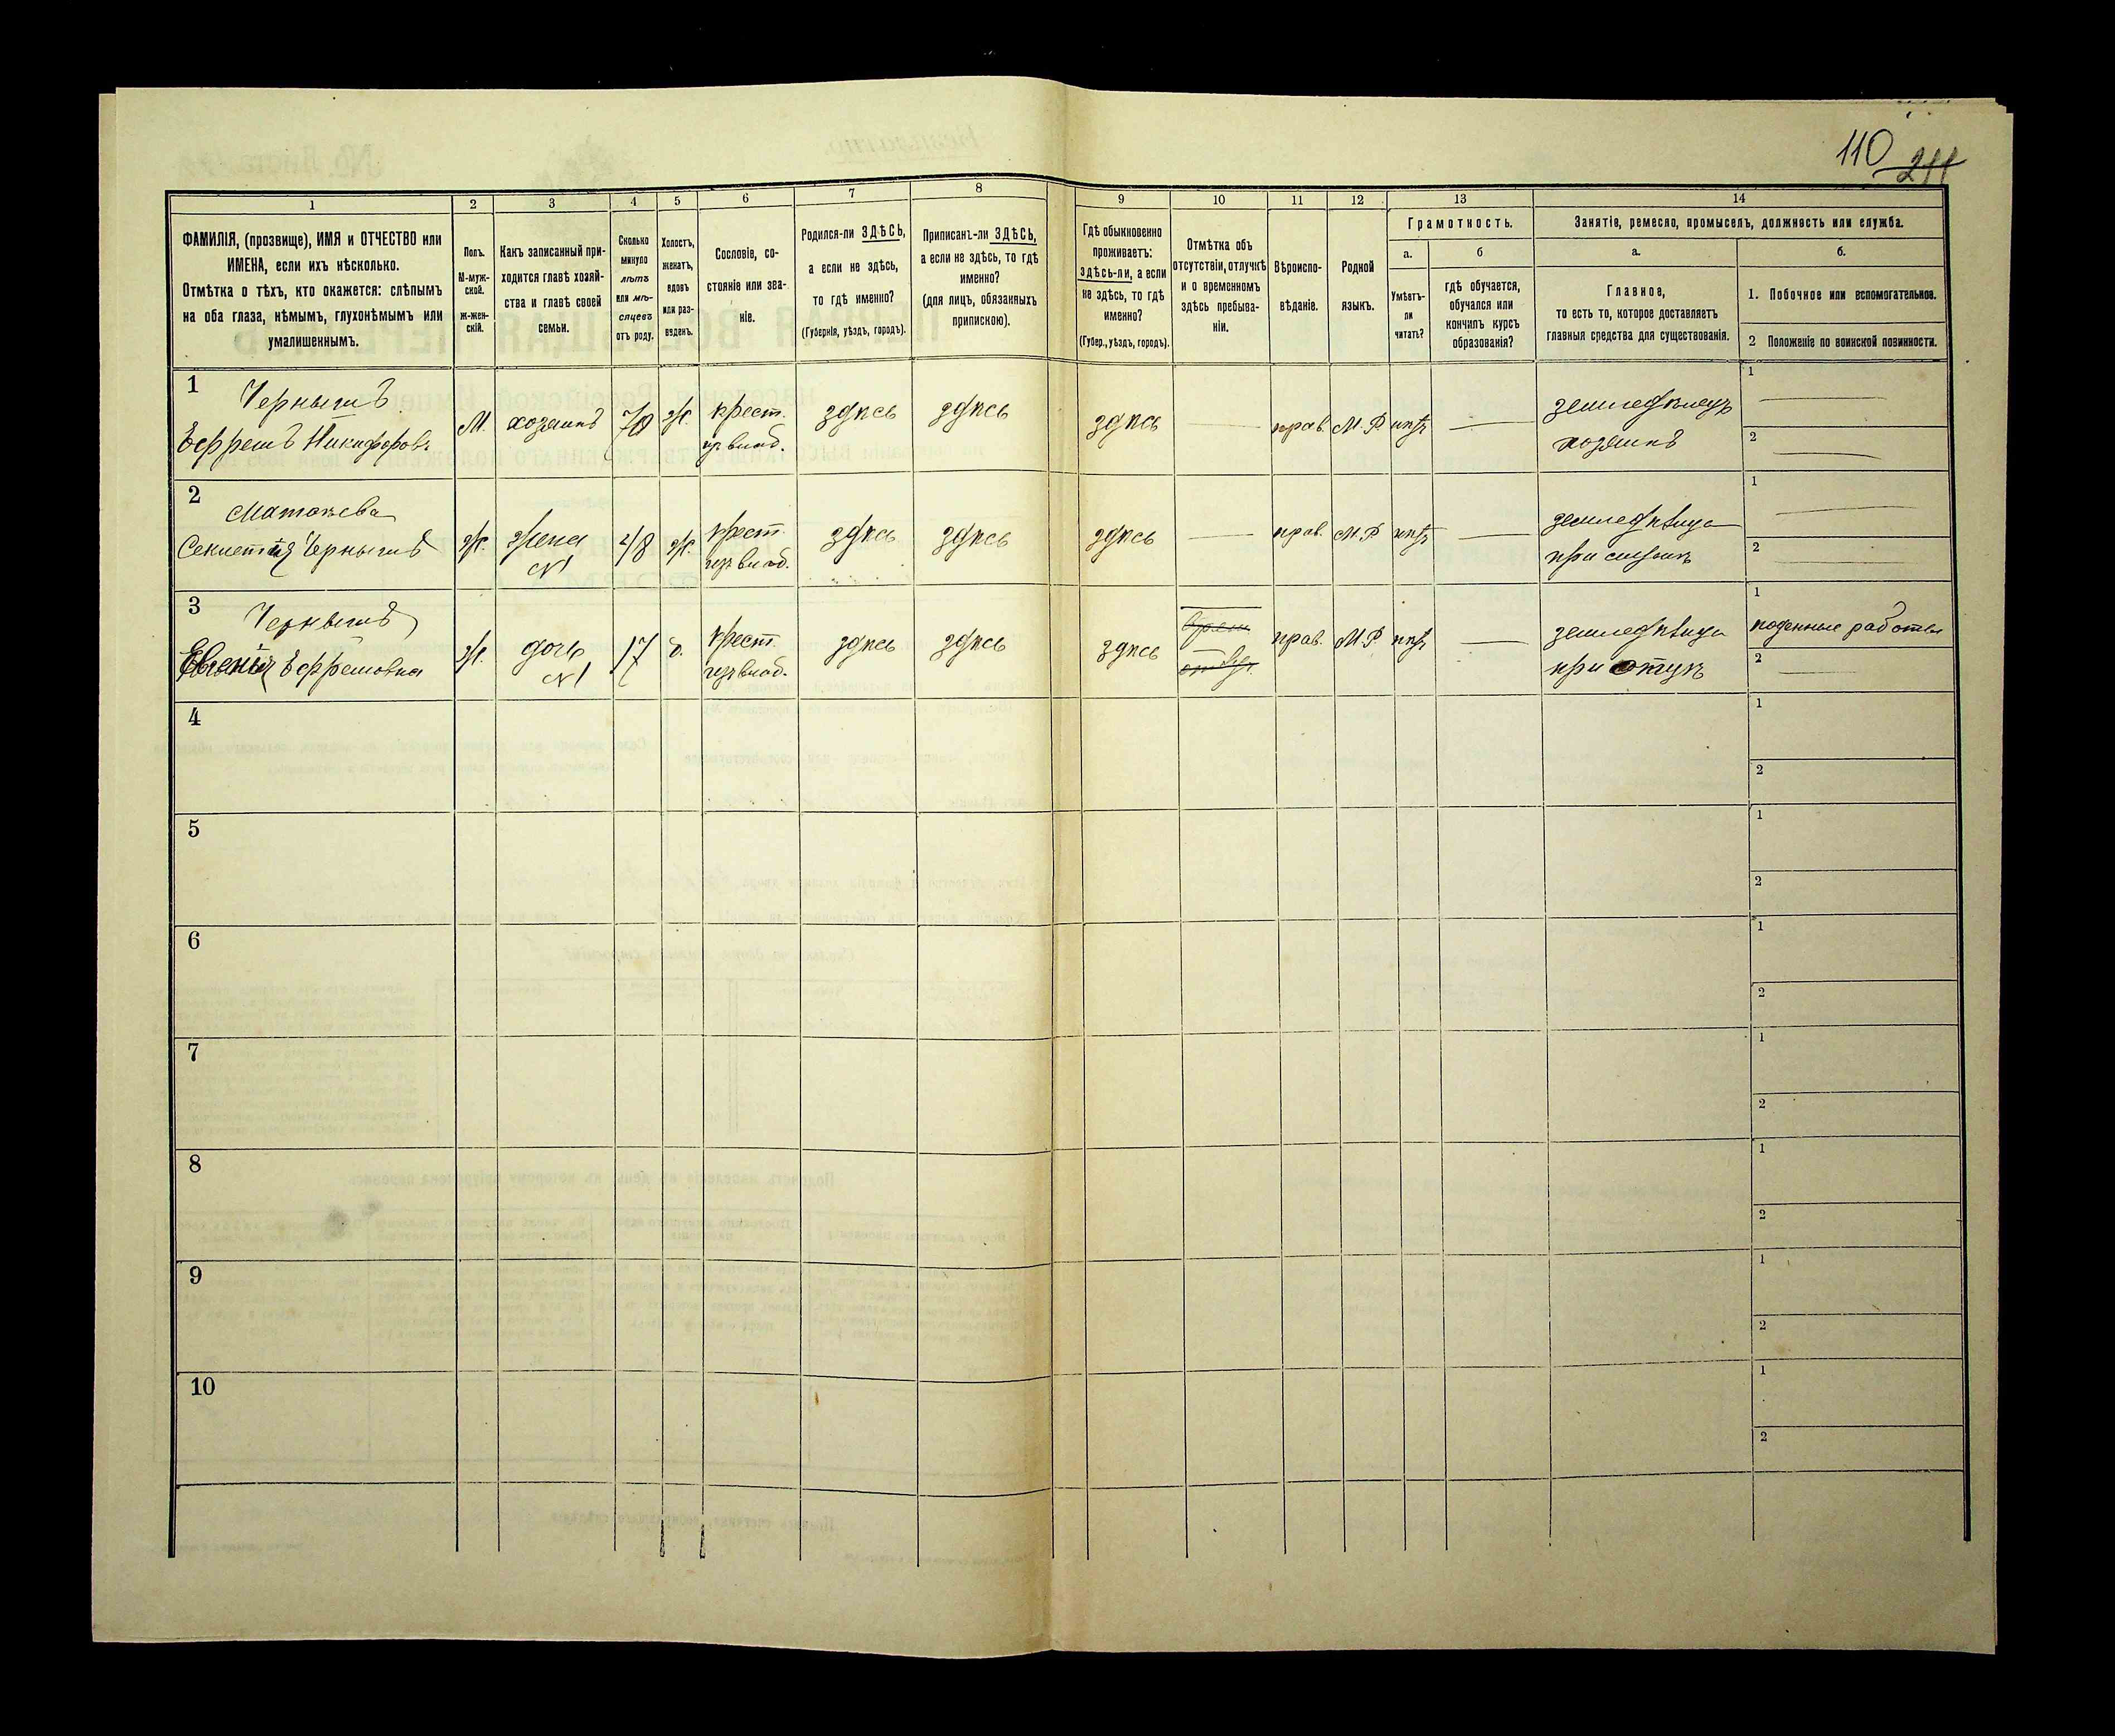 110
211
1
2
3
4
5
6
7
8
9
10
11
12
13
14
ФАМИЛІЯ, (прозвище), ИМЯ и ОТЧЕСТВО или
ИМЕНА, если ихъ нѣсколько.
Отмѣтка о тѣхъ, кто окажется: слѣпымъ
на оба глаза, нѣмымъ, глухонѣмымъ или
умалишеннымъ.
Полъ.
М-муж-
ской.
ж-жен-
скій.
Какъ записанный при-
ходится главѣ хозяй-
ства и главѣ своей
семьи.
Сколько
минуло
лѣтъ
или мѣ-
сяцевъ
отъ роду.
Холостъ,
женатъ,
вдовъ
или раз-
веденъ.
Сословіе, со-
стояніе или зва-
ніе.
Родился-ли ЗДѢСЬ,
а если не здѣсь,
то гдѣ именно?
(Губернія, уѣздъ, городъ).
Приписанъ-ли ЗДѢСЬ,
а если не здѣсь, то гдѣ
именно?
(для лицъ, обязанныхъ
припискою).
Гдѣ обыкновенно
проживаетъ:
здѣсь-ли, а если
не здѣсь, то гдѣ
именно?
(Губер., уѣздъ, городъ).
Отмѣтка объ
отсутствіи, отлучкѣ
и о временномъ
здѣсь пребыва-
ніи.
Вѣроиспо-
вѣданіе.
Родной
языкъ.
Грамотность.
а.
Умѣетъ-
ли
читать?
б
гдѣ обучается,
обучался или
кончилъ курсъ
образованія?
Занятіе, ремесло, промыселъ, должность или служба.
а.
Главное,
то есть то, которое доставляетъ
главныя средства для существованія.
б.
1. Побочное или вспомогательное.
2 Положеніе по воинской повинности.
1
Чернышъ
Ефремъ Никифоровъ
М.
хозяинъ
70
ж.
крест.
изъ влад.
здѣсь
здѣсь
здѣсь
—
прав.
М.Р.
нѣтъ
—
земледѣлецъ
хозяинъ
1 —
2 —
2
Матвѣева
Чернышъ
ж.
жена
N1
48
ж.
крест.
изъ влад.
здѣсь
здѣсь
здѣсь
—
прав.
М.Р
нѣтъ
—
земледѣлица
при мужѣ
1 —
2 —
3
Чернышъ
Евгенія Ефремовна
ж.
дочь
N1
17
д.
крест.
изъ влад.
здѣсь
здѣсь
здѣсь
прав.
М.Р
нѣтъ
—
земледѣлица
при отцѣ
1
поденные работы
2 —
4
1
2
5
1
2
6
1
2
7
1
2
8
1
2
9
1
2
10
1
2